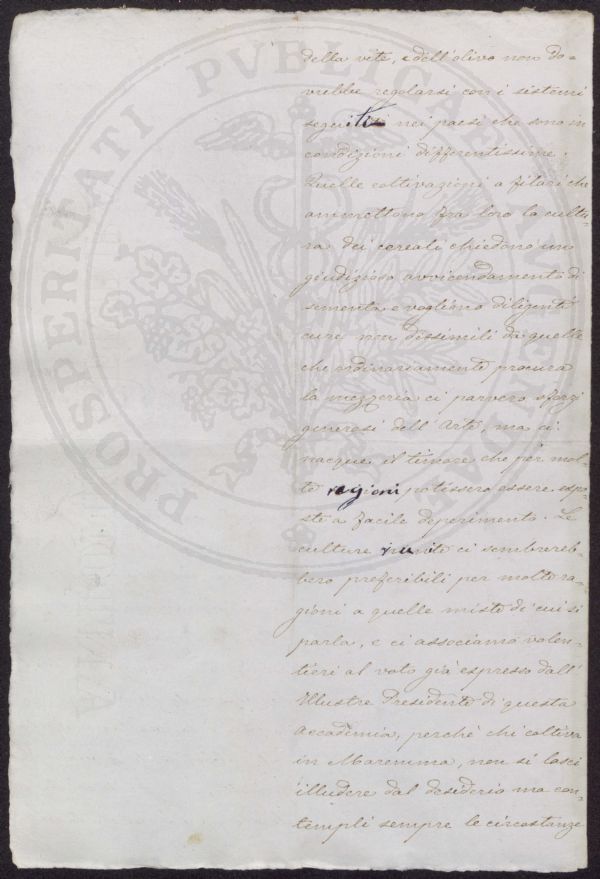 PROSPERITATI PVBLICAE AVGENDAE
della vite, e dell'olivo non do-
vrebbe regolarsi con i sistemi
seguiti nei paesi che sono in
condizioni differentissime.
Quelle coltivazioni a filari che
ammettono fra loro la cultu-
ra dei cereali chiedono un
giudizioso avvicendamento di
sementa e vogliono diligenti
cure non dissimili da quelle
che ordinariamente procura
la mezzeria ci parvero sforzi
generosi dell'Arte, ma ci
nacque il timore che per mol-
te ragioni potissero essere espo-
ste a facile deperimento. Le
culture riunite ci sembrereb-
bero preferibili per molte ra-
gioni a quelle miste di cui si
parla, e ci associamo volen-
tieri al voto già espresso dall'
Illustre Presidente di questa
Accademia, perchè chi coltiva
in Maremma, non si lasci
illudere dal desiderio ma con-
templi sempre le circostanze